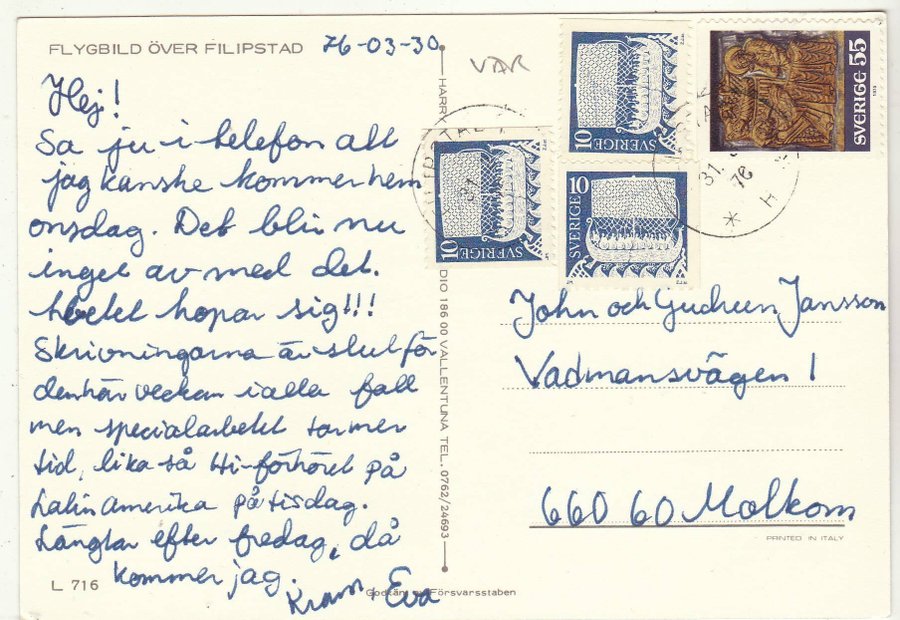 FLYGBILD ÖVER FILIPSTAD 76-03-30
Hej!
Sa ju i telefon att
jag kanske kommer hem
onsdag. Det blir nu
inget av med det.
hopar sig!!!
Skrivningarna är slut för
denhär veckan i alla fall
men specialarbetet tar mer
tid, lika så Hi-förhöret på
Latinamerika på tisdag.
Längtar efter fredag, då
kommer jag.
Kram, Eva
L 716
Godkänt av Försvarsstaben
HARRY
DIO 186 00 VALLENTUNA TEL. 0762/24693
VAR
SVERIGE 10
SVERIGE 10
SVERIGE 10
SVERIGE 55
31.
76
* H
John och Gudrun Jansson
Vadmansvägen 1
660 60 Molkom
PRINTED IN ITALY